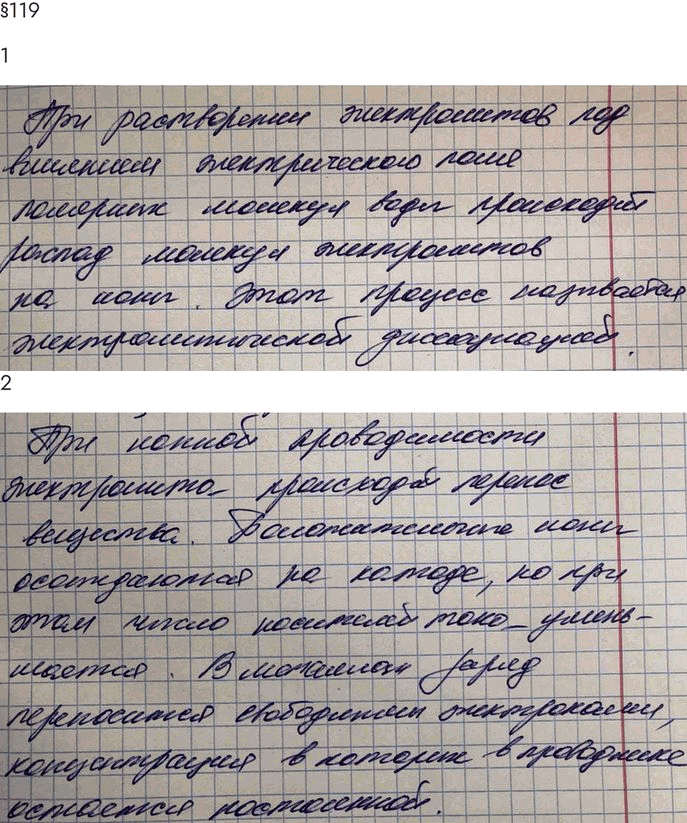 §119
1
При растворении электролитов под
влиянием электрического поля
полярных молекул воды происходит
распад молекул электролитов
на ионы. Этот процесс называется
электролитической диссоциацией.
2
При ионной проводимости
электролита происходит перенос
вещества. Положительные ионы
осаждаются на катоде, но при
этом число носителей тока умень-
шается. В металлах заряд
переносится свободными электронами,
концентрация в которых в проводнике
остается постоянной.